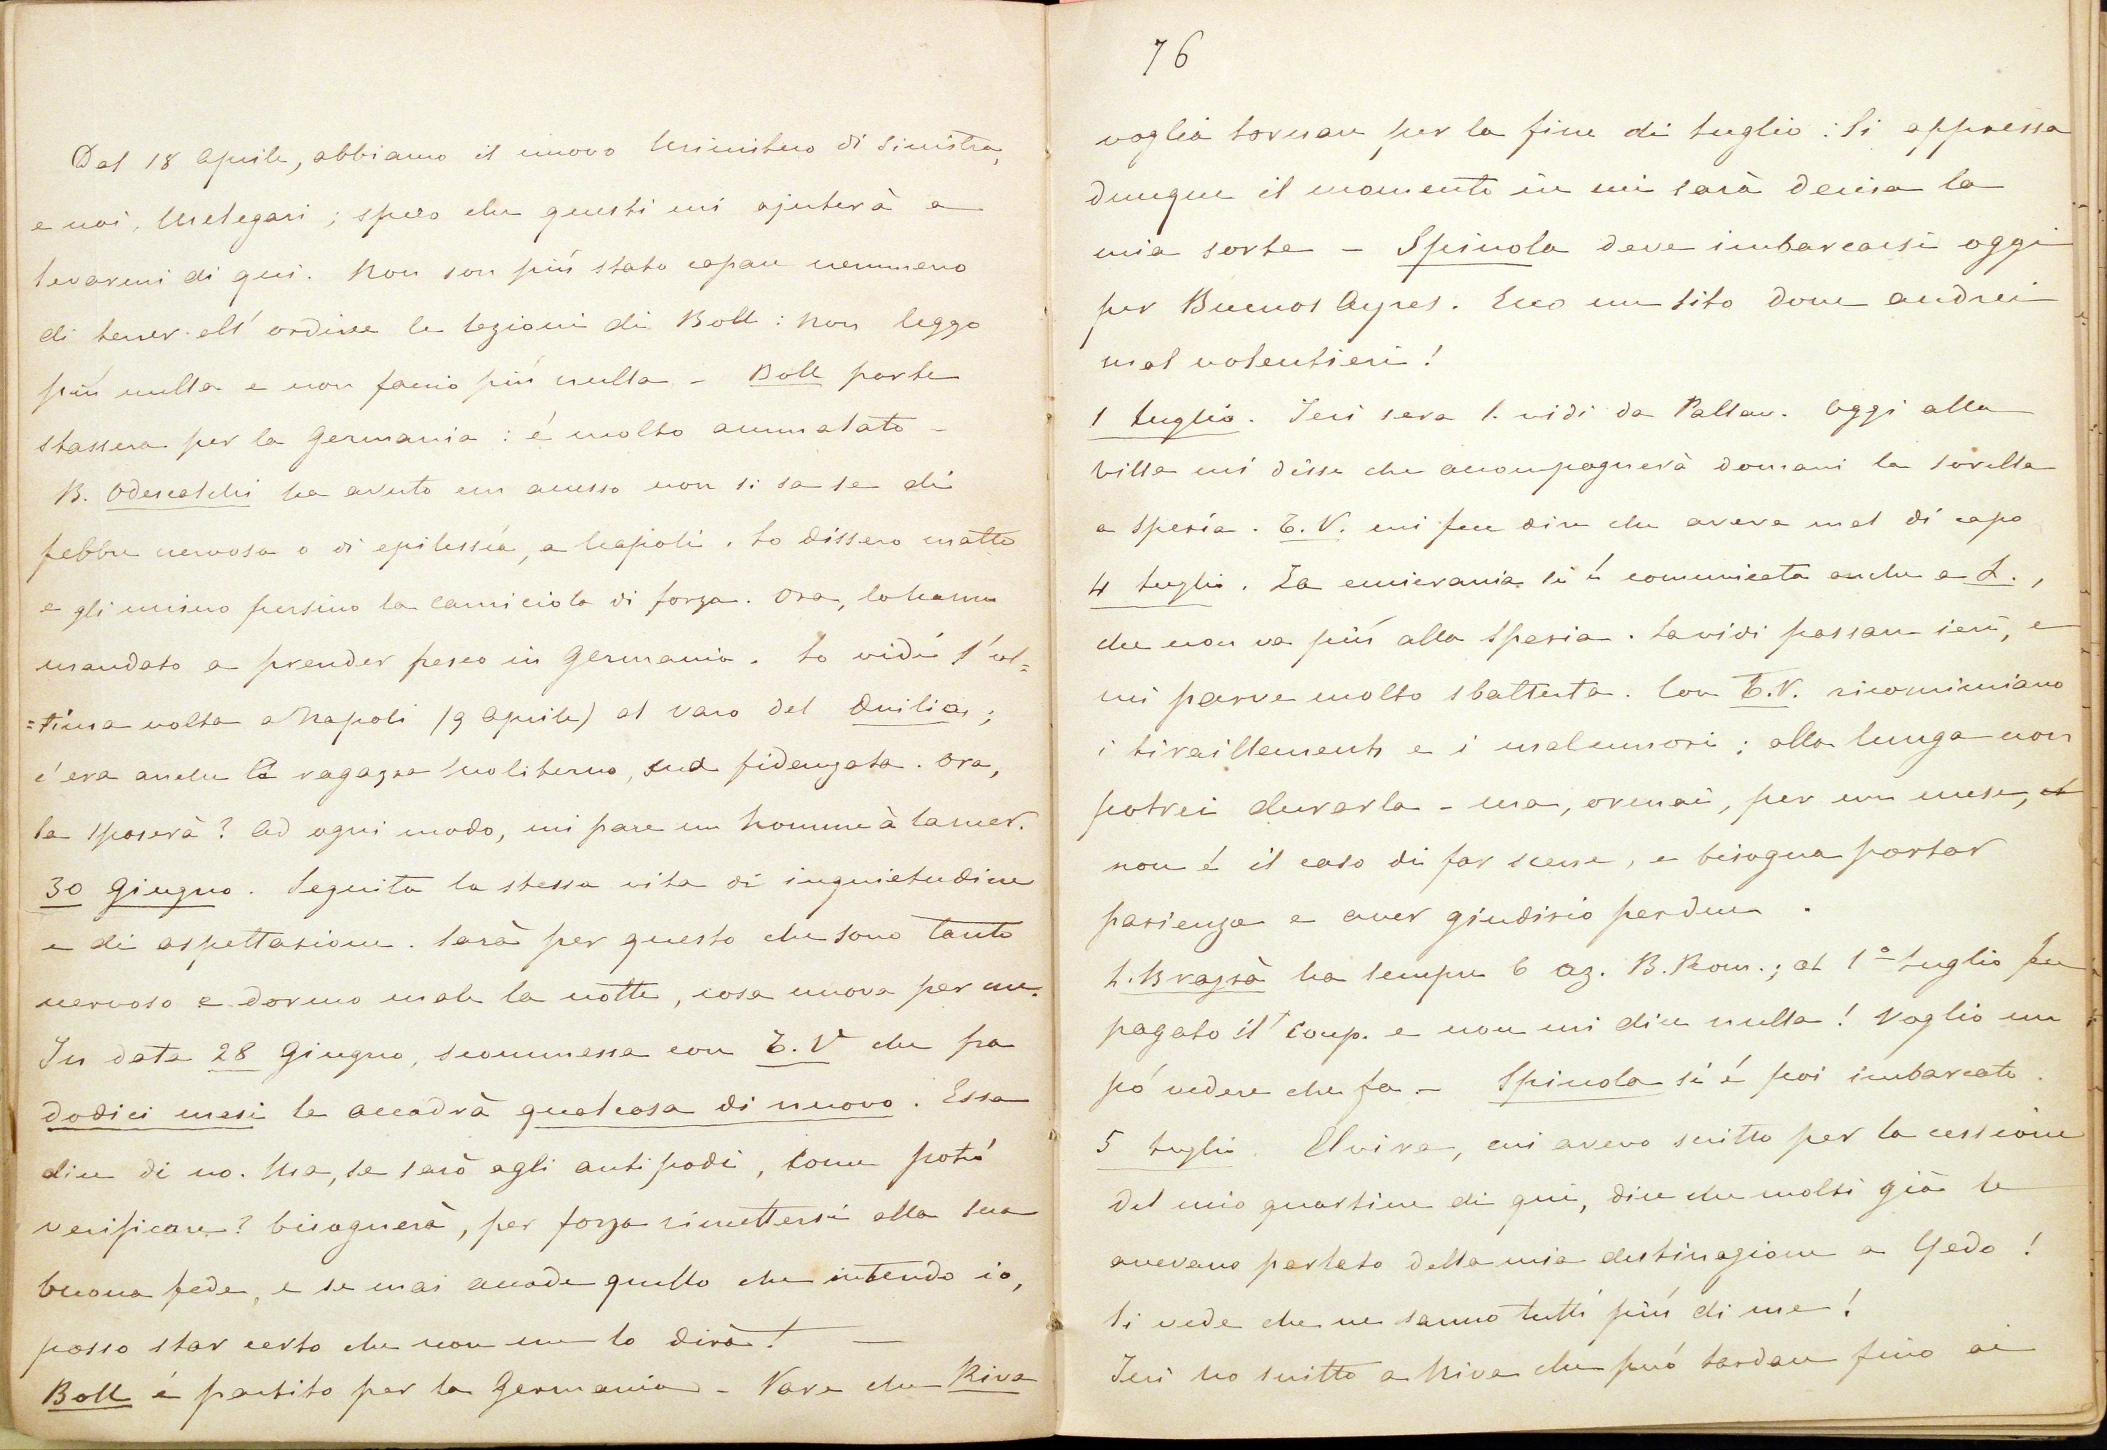 Dal 18 Aprile, abbiamo il nuovo Ministero di Sinistra,
e noi, Melegari; spero che questi mi ajuterà a
levarmi di qui. Non son più stato capace nemmeno
di tener all'ordine le lezioni di Boll: non leggo
più nulla e non faccio più nulla - Boll parte
stassera per la Germania: é molto ammalato -
B. Odescalchi ha avuto un accesso non si sa se di
febbre nervosa o di epilessía, a Napoli. Lo dissero matto
e gli misero persino la camiciola di forza. Ora, lo hanno
mandato a prender fresco in Germania. Lo vidi l'ul=
=tima volta a Napoli (9 Aprile) al varo del Duilio;
c'era anche la ragazza Moliterno, sua fidenzata. Ora,
la sposerà? Ad ogni modo, mi pare un homme à la mer.
30 Giugno. Seguita la stessa vita di inquietudine
e di aspettazione. Sarà per questo che sono tanto
nervoso e dormo male la notte, cosa nuova per me.
In data 28 Giugno, scommessa con E. V che fra
dodici mesi le accadrà qualcosa di nuovo. Essa
dice di no. Ma, se sarò agli antipodi, come potrò
verificare? bisognerà, per forza rimettersi alla sua
buona fede, e se mai accade quello che intendo io,
posso star certo che non me lo dirà! —
Boll é partito per la Germania - Pare che Riva
76
voglia tornare per la fine di Luglio: Si appressa
dunque il momento in cui sarà decisa la
mia sorte - Spinola deve imbarcarsi oggi
per Buenos Ayres. Ecco un sito dove andrei
mal volentieri!
1 Luglio. Ieri sera L. vidi da Pallav. Oggi alla
Villa mi disse che accompagnerà domani la sorella
a Spezia. E. V. mi fece dire che aveva mal di capo
4 Luglio. La emicrania si é comunicata anche a L.,
che non va più alla Spezia. La vidi passare ieri, e
mi parve molto sbattuta. Con E.V. ricominciano
i tiraillements e i malumori; alla lunga non
potrei durarla - ma, ormai, per un mese,
non é il caso di far scene, e bisogna portar
pazienza e aver giudizio perdue.
L. Brazzà ha sempre 6 az. B. Rom.; al 1° Luglio fu
pagato il coup. e non mi dice nulla! Voglio un
pó vedere che fa - Spinola si é poi imbarcato.
5 Luglio. Elvira, cui avevo scritto per la cessione
del mio quartiere di qui, dice che molti già le
avevano parlato della mia destinazione a Yedo!
Si vede che ne sanno tutti più di me!
Ieri ho scritto a Riva che può tardare fino ai